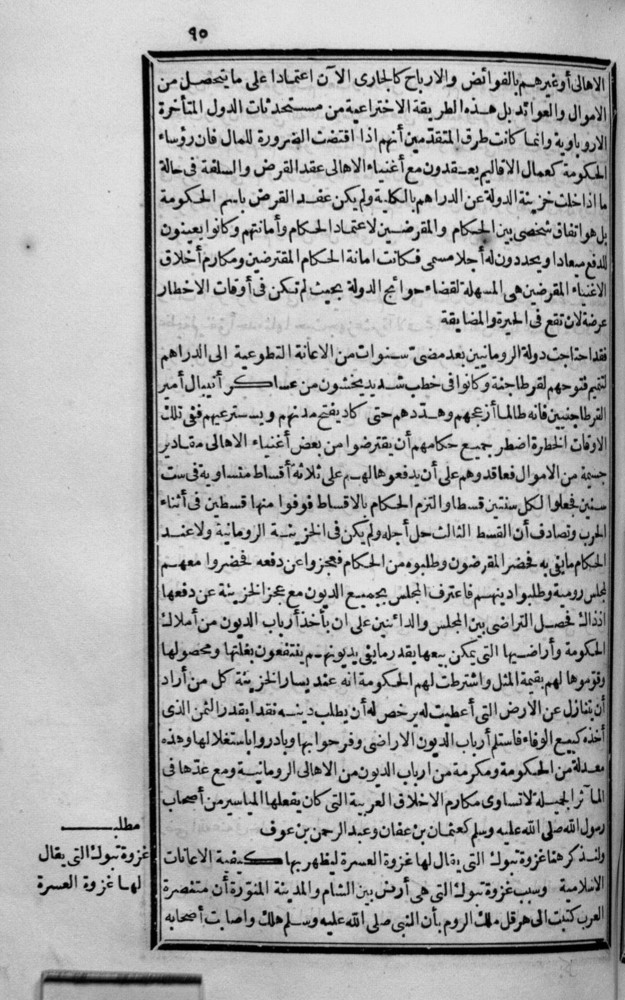 ٩٥
الاهالى أوغيرهم بالفوائض والارباح كالجارى الآن اعتمادا على ما يتحصل من
الاموال والعوائد بل هذه الطريقة الاختراعية من مستحدثات الدول المتأخرة
الاروباوية وانما كانت طرق المتقدمين أنهم اذا اقتضت الضرورة للمال فان رؤساء
الحكومة كعمال الاقاليم يعتقدون مع أغنياء الاهالى عقد القرض والسلفة فى حالة
ما اذا خلت خزينة الدولة عن الدراهم بالكلية ولم يكن عقد القرض باسم الحكومة
بل هو اتفاق شخصى بين الحكام والمقرضين لاعتماد الحكام وأمانتهم وكانوا يعينون
للدفع ميعادا ويحددون له أجلا مسمى فكانت امانة الحكام المقترضين ومكارم أخلاق
الاغنياء المقرضين هى المسهلة لقضاء حوائج الدولة بحيث لم تكن فى أوقات الاخطار
عرضة لان تقع فى الحيرة والمضايقة
فقد احتاجت دولة الرومانيين بعد مضى سنوات من الاعانة التطوعية الى الدراهم
لتتميم فتوحهم لقرطاجنة وكانوا فى خطب شديد يخشون من عساكر أنيبال أمير
القرطاجنيين فانه طالما أزعجهم وهددهم حتى كاد يفتح مدنهم ويسترعيهم ففى تلك
الاوقات الخطرة اضطر جميع حكامهم أن يقترضوا من بعض أغنياء الاهالى مقادير
جسيمة من الاموال فعاقدوهم على أن يدفعوها لهم على ثلاثة أقساط متساوية فى ست
سنين فجعلوا لكل سنتين قسطا والتزم الحكام بالاقساط فوفوا منها قسطين فى أثناء
الحرب وتصادف أن القسط الثالث حل أجله ولم يكن فى الخزينة الرومانية ولا عند
الحكام ما يفى به فحضر المقرضون وطلبوه من الحكام فعجزوا عن دفعه فحضروا معهم
لمجلس رومة وطلبوا دينهم فاعترف المجلس بجميع الديون مع عجز الخزينة عن دفعها
اذ ذاك فحصل التراضى بين المجلس والدائنين على ان يأخذ أرباب الديون من أملاك
الحكومة وأراضيها التى يمكن بيعها بقدر ما يفى بديونهم ينتفعون بغلتها ومحصولها
وقوموها لهم بقيمة المثل واشترطت لهم الحكومة انه عند يسار الخزينة كل من أراد
أن يتنازل عن الارض التى أعطيت له يرخص له أن يطلب دينه نقدا بقدر الثمن الذى
أخذه كبيع الوفاء فاستلم أرباب الديون الاراضى وفرحوا بها وبادروا باستغلالها وهذه
معدلة من الحكومة ومكرمة من ارباب الديون من الاهالى الرومانية ومع عدها فى
المآثر الجميلة لا تساوى مكارم الاخلاق العربية التى كان يفعلها المياسير من أصحاب
رسول الله صلى الله عليه وسلم كعثمان بن عفان وعبد الرحمن بن عوف
ولنذكر هنا غزوة تبوك التى يقال لها غزوة العسرة ليظهر بها كيفية الاعانات
الاسلامية وسبب غزوة تبوك التى هى أرض بين الشام والمدينة المنورة أن متنصرة
العرب كتبت الى هرقل ملك الروم بأن النبى صلى الله عليه وسلم هلك واصابت أصحابه
مطلب
غزوة تبوك التى يقال
لها غزوة العسرة